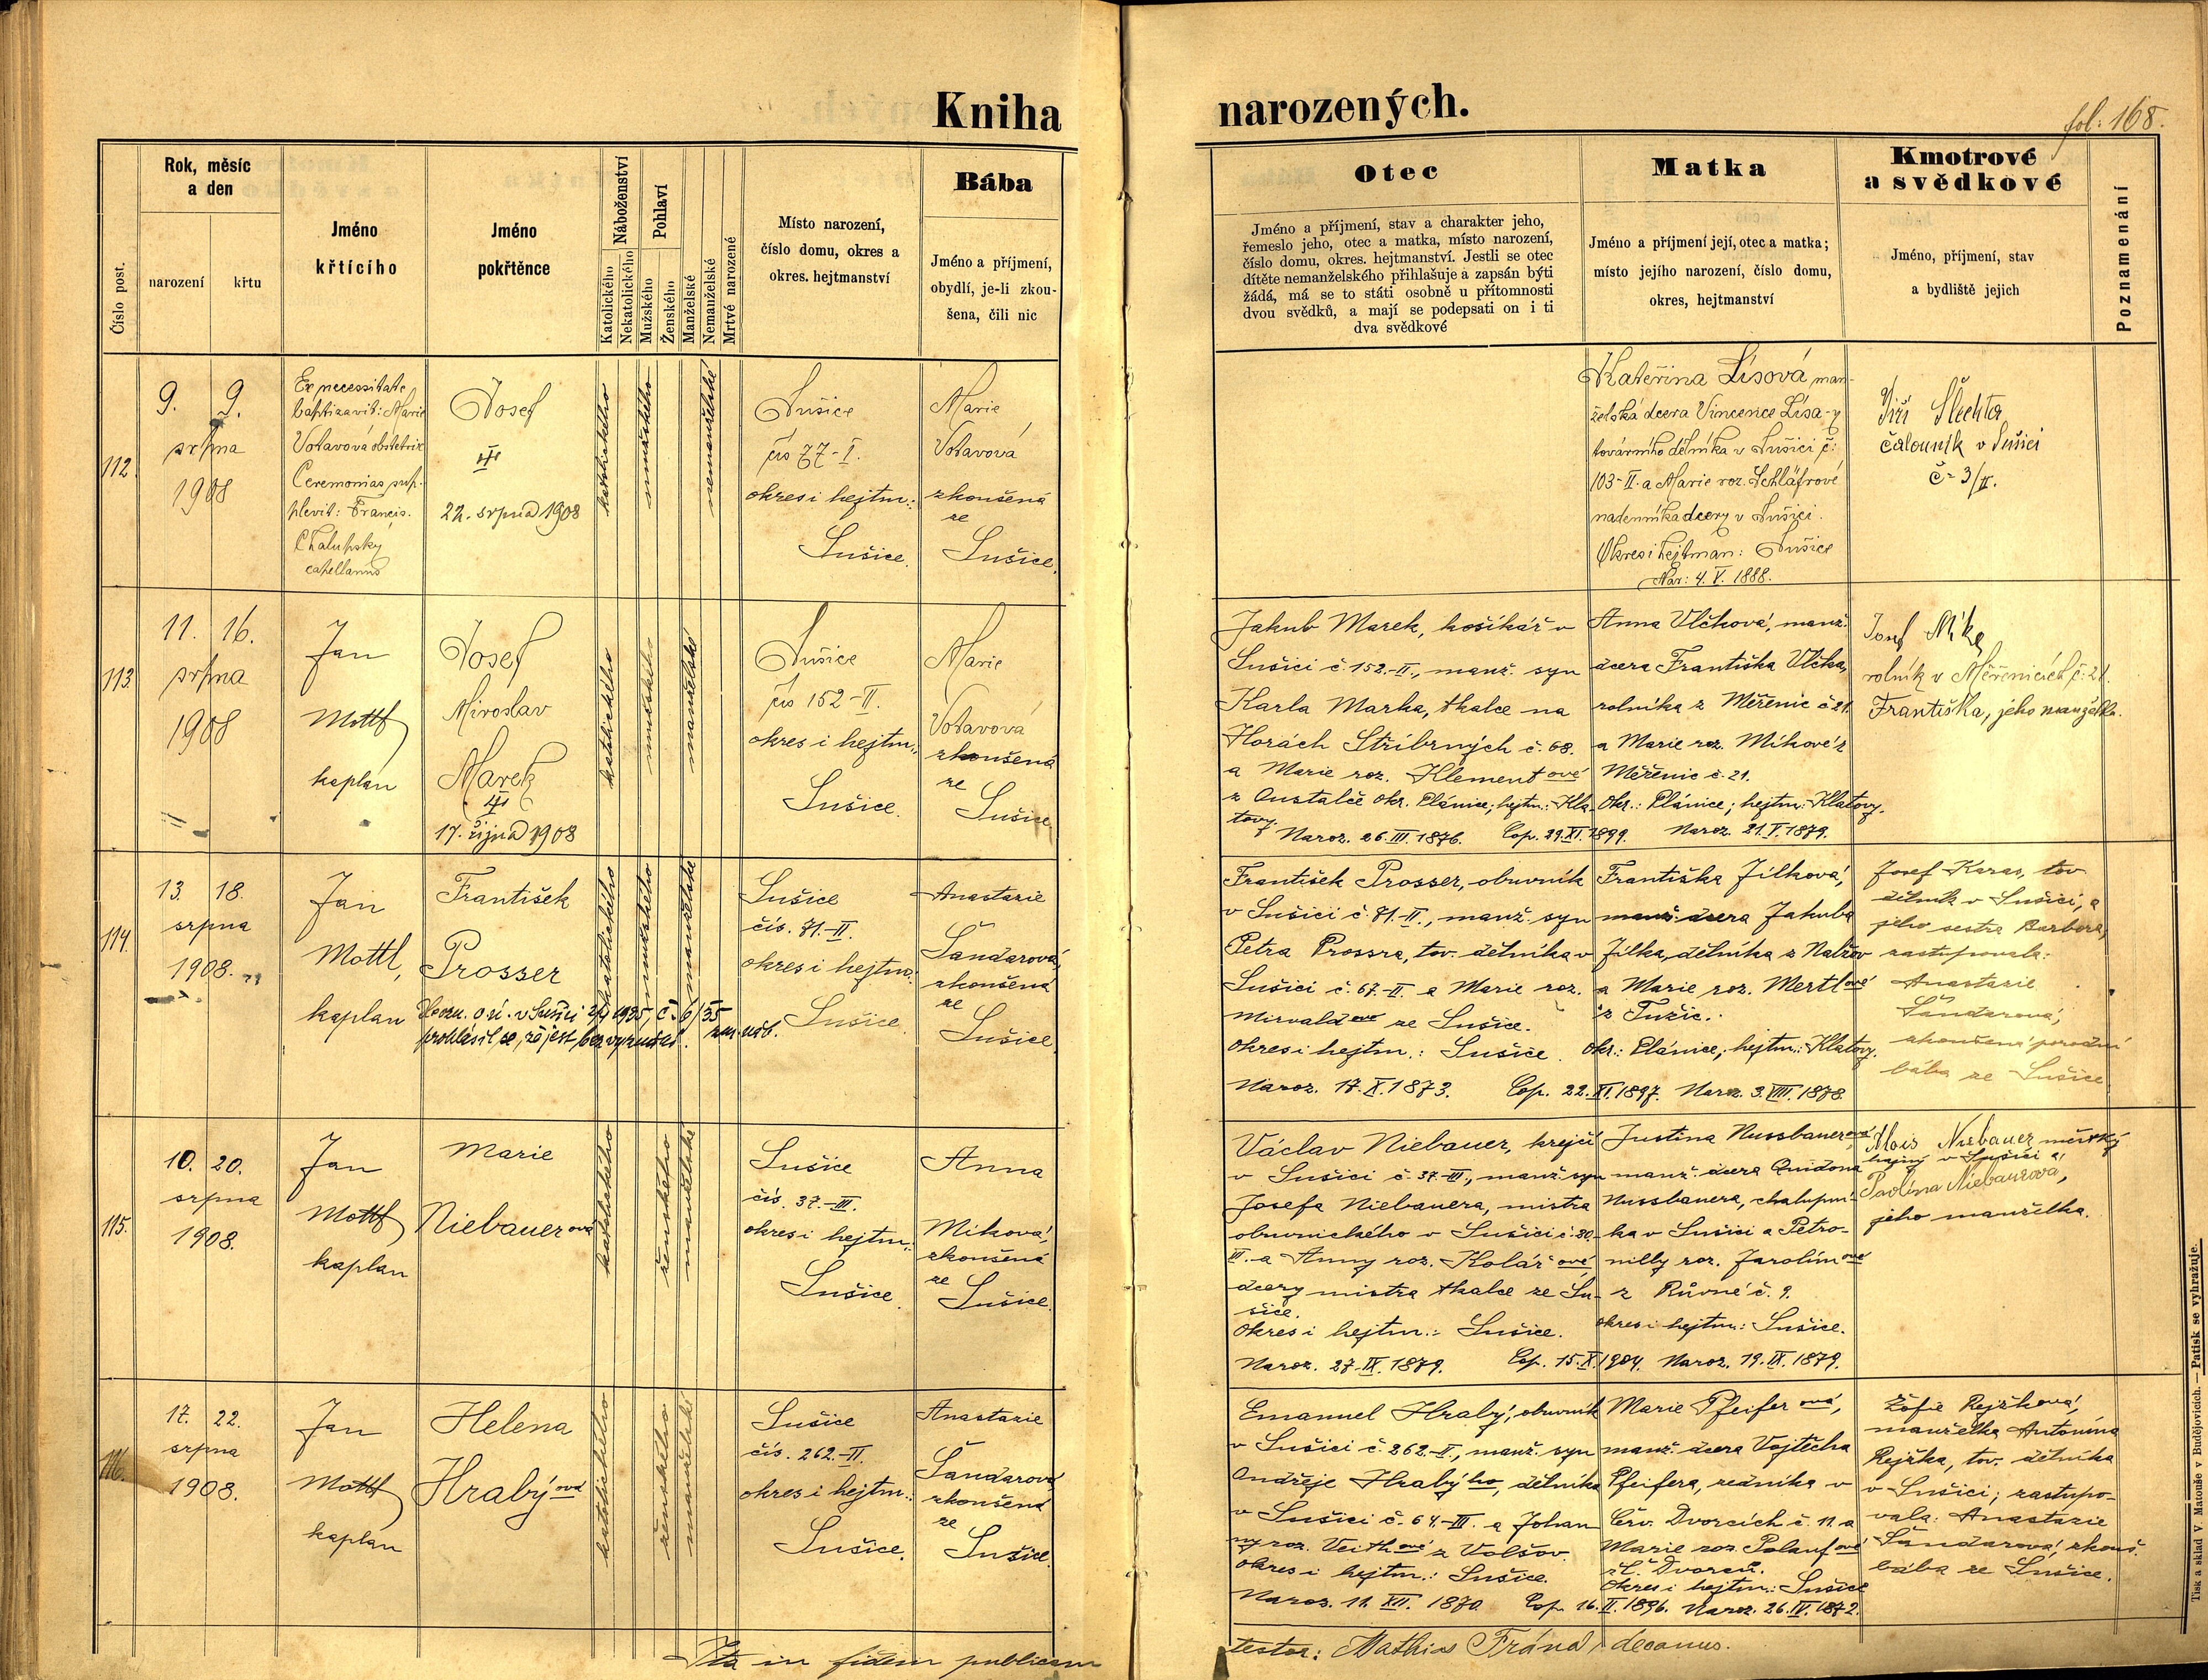 Kniha narozených.
fol: 168.
Číslo post.
Rok, měsíc
a den
narození
křtu
Jméno
křtícího
Jméno
pokřtěnce
Náboženství
Katolického
Nekatolického
Pohlaví
Mužského
Ženského
Manželské
Nemanželské
Mrtvé narozené
Místo narození,
číslo domu, okres a
okres. hejtmanství
Bába
Jméno a příjmení,
obydlí, je-li zkou-
šena, čili nic
Otec
Jméno a příjmení, stav a charakter jeho,
řemeslo jeho, otec a matka, místo narození,
číslo domu, okres. hejtmanství. Jestli se otec
dítěte nemanželského přihlašuje a zapsán býti
žádá, má se to státi osobně u přítomnosti
dvou svědků, a mají se podepsati on i ti
dva svědkové
Matka
Jméno a příjmení její, otec a matka;
místo jejího narození, číslo domu,
okres, hejtmanství
Kmotrové
a svědkové
Jméno, příjmení, stav
a bydliště jejich
Poznamenání
112.
9. 9.
srpna
1908
Ex necessitate
baptizavit: Marie
Votavová obstetrix
Ceremonias sup-
plevit: Francis.
Chalupský
capellanus
Josef
22. srpna 1908
katolického
mužského
nemanželské
Sušice
čís 77-I.
okres i hejtm.:
Sušice.
Marie
Votavová
zkoušená
ze
Sušice.
Kateřina Lísová, man-
želská dcera Vincence Lísa-y
továrního dělníka v Sušici č:
103-II. a Marie roz. Schläfrové
nadenníka dcery v Sušici.
Okres i hejtman: Sušice
Nar: 4. V. 1888.
Jiří Šlechta
čalouník v Sušici
č- 3/II.
113.
11. 16.
srpna
1908
Jan
Mottl
kaplan
Josef
Miroslav
Marek
17. října 1908
katolického
mužského
manželské
Sušice
čís 152-II.
okres i hejtm.:
Sušice.
Marie
Votavová
zkoušená
ze
Sušice
Jakub Marek, košíkář v
Sušici č. 152.-II., manž. syn
Karla Marka, tkalce na
Horách Stříbrných č. 68.
a Marie roz. Klementové
z Oustalče okr. Plánice; hejtm.: Kla-
tovy.
Naroz. 26. III. 1876. Cop. 29. XI. 1899.
Anna Vlčková, manž.
dcera Františka Vlčka,
rolníka z Měřenic č. 21.
a Marie roz. Míkové z
Měřenic č. 21.
Okr.: Plánice; hejtm.: Klatovy.
Naroz. 21. V. 1879.
Josef Míka
rolník v Měřenicích č. 21.
Františka, jeho manželka.
114.
13. 18.
srpna
1908.
Jan
Mottl,
kaplan
František
Prosser
prohlásil se, že jest bez vyznání.
katolického
mužského
manželské
Sušice
čís. 71.-II.
okres i hejtm.:
Sušice.
Anastazie
Šandarová,
zkoušená
ze
Sušice.
František Prosser, obuvník
v Sušici č. 71.-II., manž. syn
Petra Prossra, tov. dělníka v
Sušici č. 67.-II. a Marie roz.
Mirvaldové ze Sušice.
Okres i hejtm.: Sušice.
Naroz. 17. X. 1873. Cop. 22. XI. 1897.
Františka Jílková,
manž. dcera Jakuba
Jílka, dělníka z Nalžov
a Marie roz. Mertlové
z Tužic.
Okr.: Plánice; hejtm.: Klatovy.
Naroz. 3. VIII. 1878.
Josef Karas, tov.
dělník v Sušici, a
jeho sestra Barbora,
zastupovala:
Anastazie
Šandarová,
zkoušená porodní
bába ze Sušice.
115.
10. 20.
srpna
1908.
Jan
Mottl
kaplan
Marie
Niebauerová
katolického
ženského
manželské
Sušice
čís. 37.-III.
okres i hejtm.:
Sušice.
Anna
Míková,
zkoušená
ze
Sušice.
Václav Niebauer, krejčí
v Sušici č. 37.-III., manž. syn
Josefa Niebauera, mistra
obuvnického v Sušici č. 80.-
III. a Anny roz. Kolářové,
dcery mistra tkalce ze Su-
šice.
Okres i hejtm.: Sušice.
Naroz. 27. IX. 1879. Cop. 15. X. 1904.
Justina Nussbauerová,
manž. dcera Quidona
Nussbauera, chalupní-
ka v Sušici a Petro-
nilly roz. Jarolímové
z Růvné č. 9.
Okres i hejtm.: Sušice.
Naroz. 19. IX. 1879.
Alois Niebauer městský
hajný v Sušici a
Pavlína Niebaurová,
jeho manželka.
116.
17. 22.
srpna
1908.
Jan
Mottl
kaplan
Helena
Hrabýová
katolického
ženského
manželské
Sušice
čís. 262.-II.
okres i hejtm.:
Sušice.
Anastazie
Šandarová
zkoušená
ze
Sušice.
Emanuel Hrabý, obuvník
v Sušici č. 262.-II., manž. syn
Ondřeje Hrabýho, dělníka
v Sušici č. 64.-III. a Johan-
ny roz. Veithové z Volšov.
Okres i hejtm.: Sušice.
Naroz. 11. XII. 1870. Cop. 16. II. 1896.
Marie Pfeiferová,
manž. dcera Vojtěcha
Pfeifera, zedníka v
Červ. Dvorcích č. 11. a
Marie roz. Polaufové
z Č. Dvorců.
Okres i hejtm.: Sušice
Naroz. 26. IV. 1872.
Žofie Rejžková,
manželka Antonína
Rejžka, tov. dělníka
v Sušici; zastupo-
vala: Anastazie
Šandarová, zkouš.
bába ze Sušice.
Ita in fidem publicam testor: Mathias Fránd, decanus.
Tisk a sklad V. Matouše v Budějovicích. — Patisk se vyhražuje.